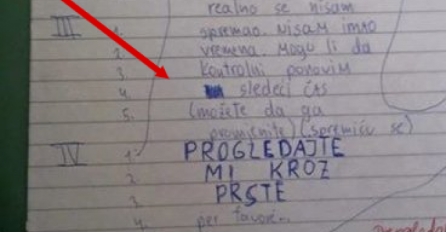 realno se nisam
III 1. spremao. Nisam imao
2. vremena. Mogu li da
3. kontrolni ponovim
4. sledeći čas
5. (možete da ga
promenite) (spremiću se)
IV 1. PROGLEDAJTE
2. MI KROZ
3. PRSTE
4. per favore.